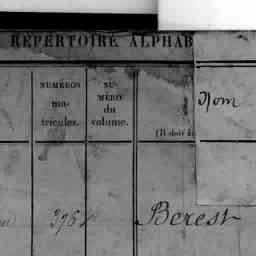 RÉPERTOIRE ALPHAB
NUMÉROS
ma-
tricules.
NU-
MÉRO
du
volume.
(Il doit ê
Nom
376
Berest